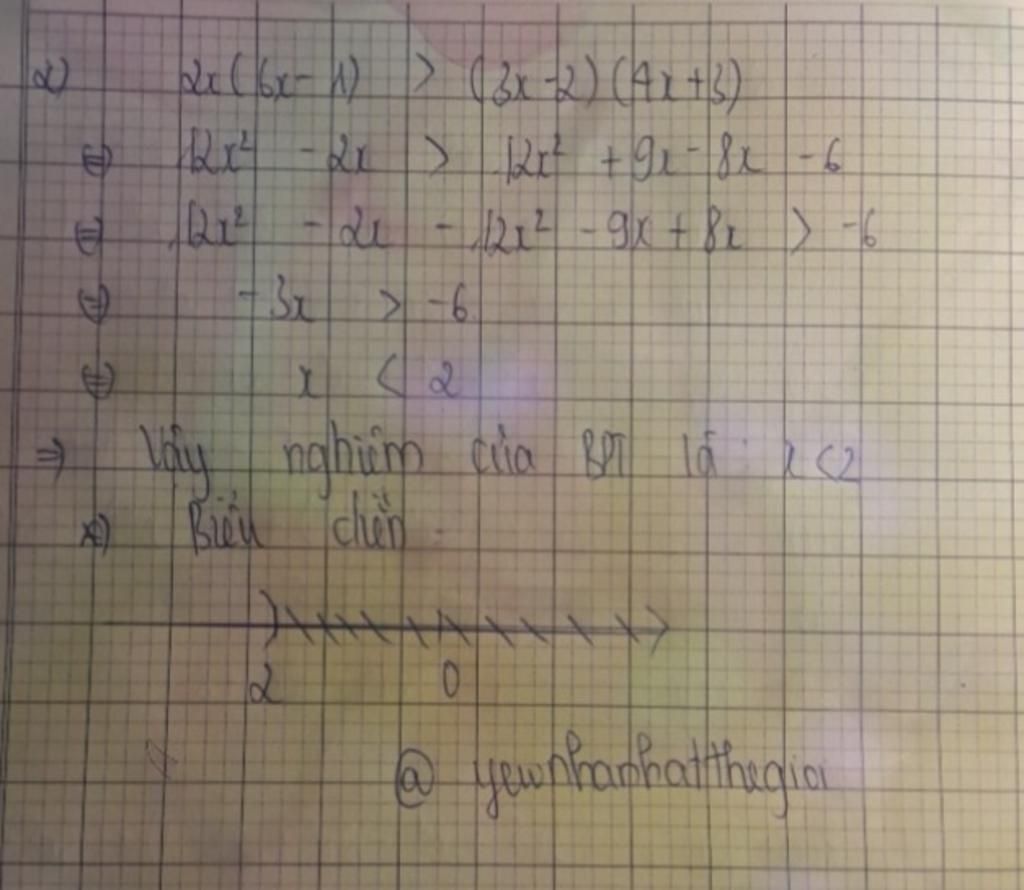 d) 2x(6x-1) > (3x-2)(4x+3)
⇔ 12x² - 2x > 12x² + 9x - 8x - 6
⇔ 12x² - 2x - 12x² - 9x + 8x > -6
⇔ -3x > -6
⇔ x < 2
⇒ Vậy nghiệm của BPT là: x < 2
*) Biểu diễn:
2 0
@ yewnhanhatthegioi